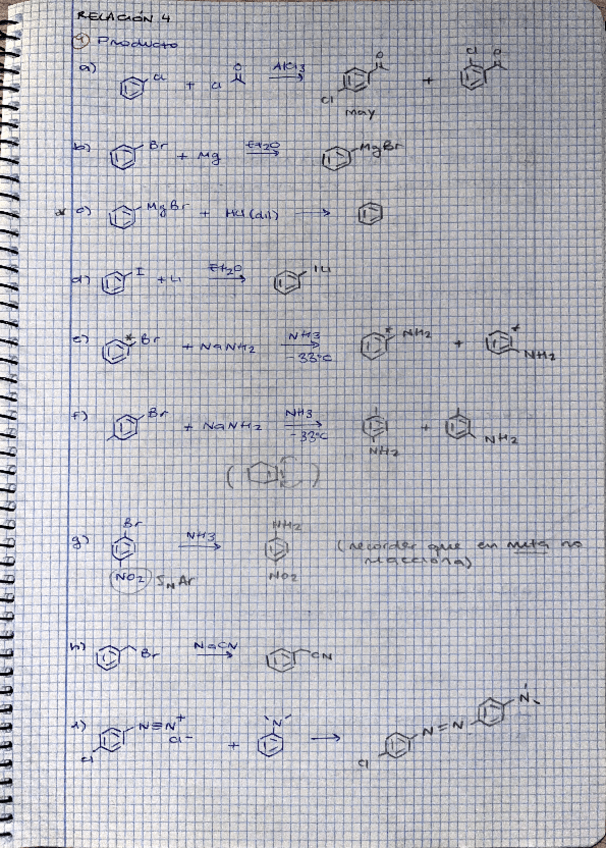 RELACIÓN 4
1 Producto
a) Cl + Cl O AlCl3 → O Cl + Cl O
may
b) Br + Mg Et2O → MgBr
* c) MgBr + HCl (dil) →
d) I + Li Et2O → Li
e) * Br + NaNH2 NH3 -33°C → * NH2 + * NH2
f) Br + NaNH2 NH3 -33°C → NH2 + NH2
g) Br NO2 SNAr NH3 → NH2 NO2 (recorder que en meta no reacciona)
h) Br NaCN → CN
i) Cl N≡N+ Cl- + N → Cl N=N N